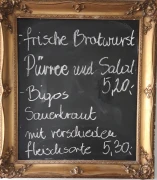 -frische Bratwurst
Pürree und Salat
5,20.-
-Bigos
Sauerkraut
mit verschieden
fleischsorte 5,30.-